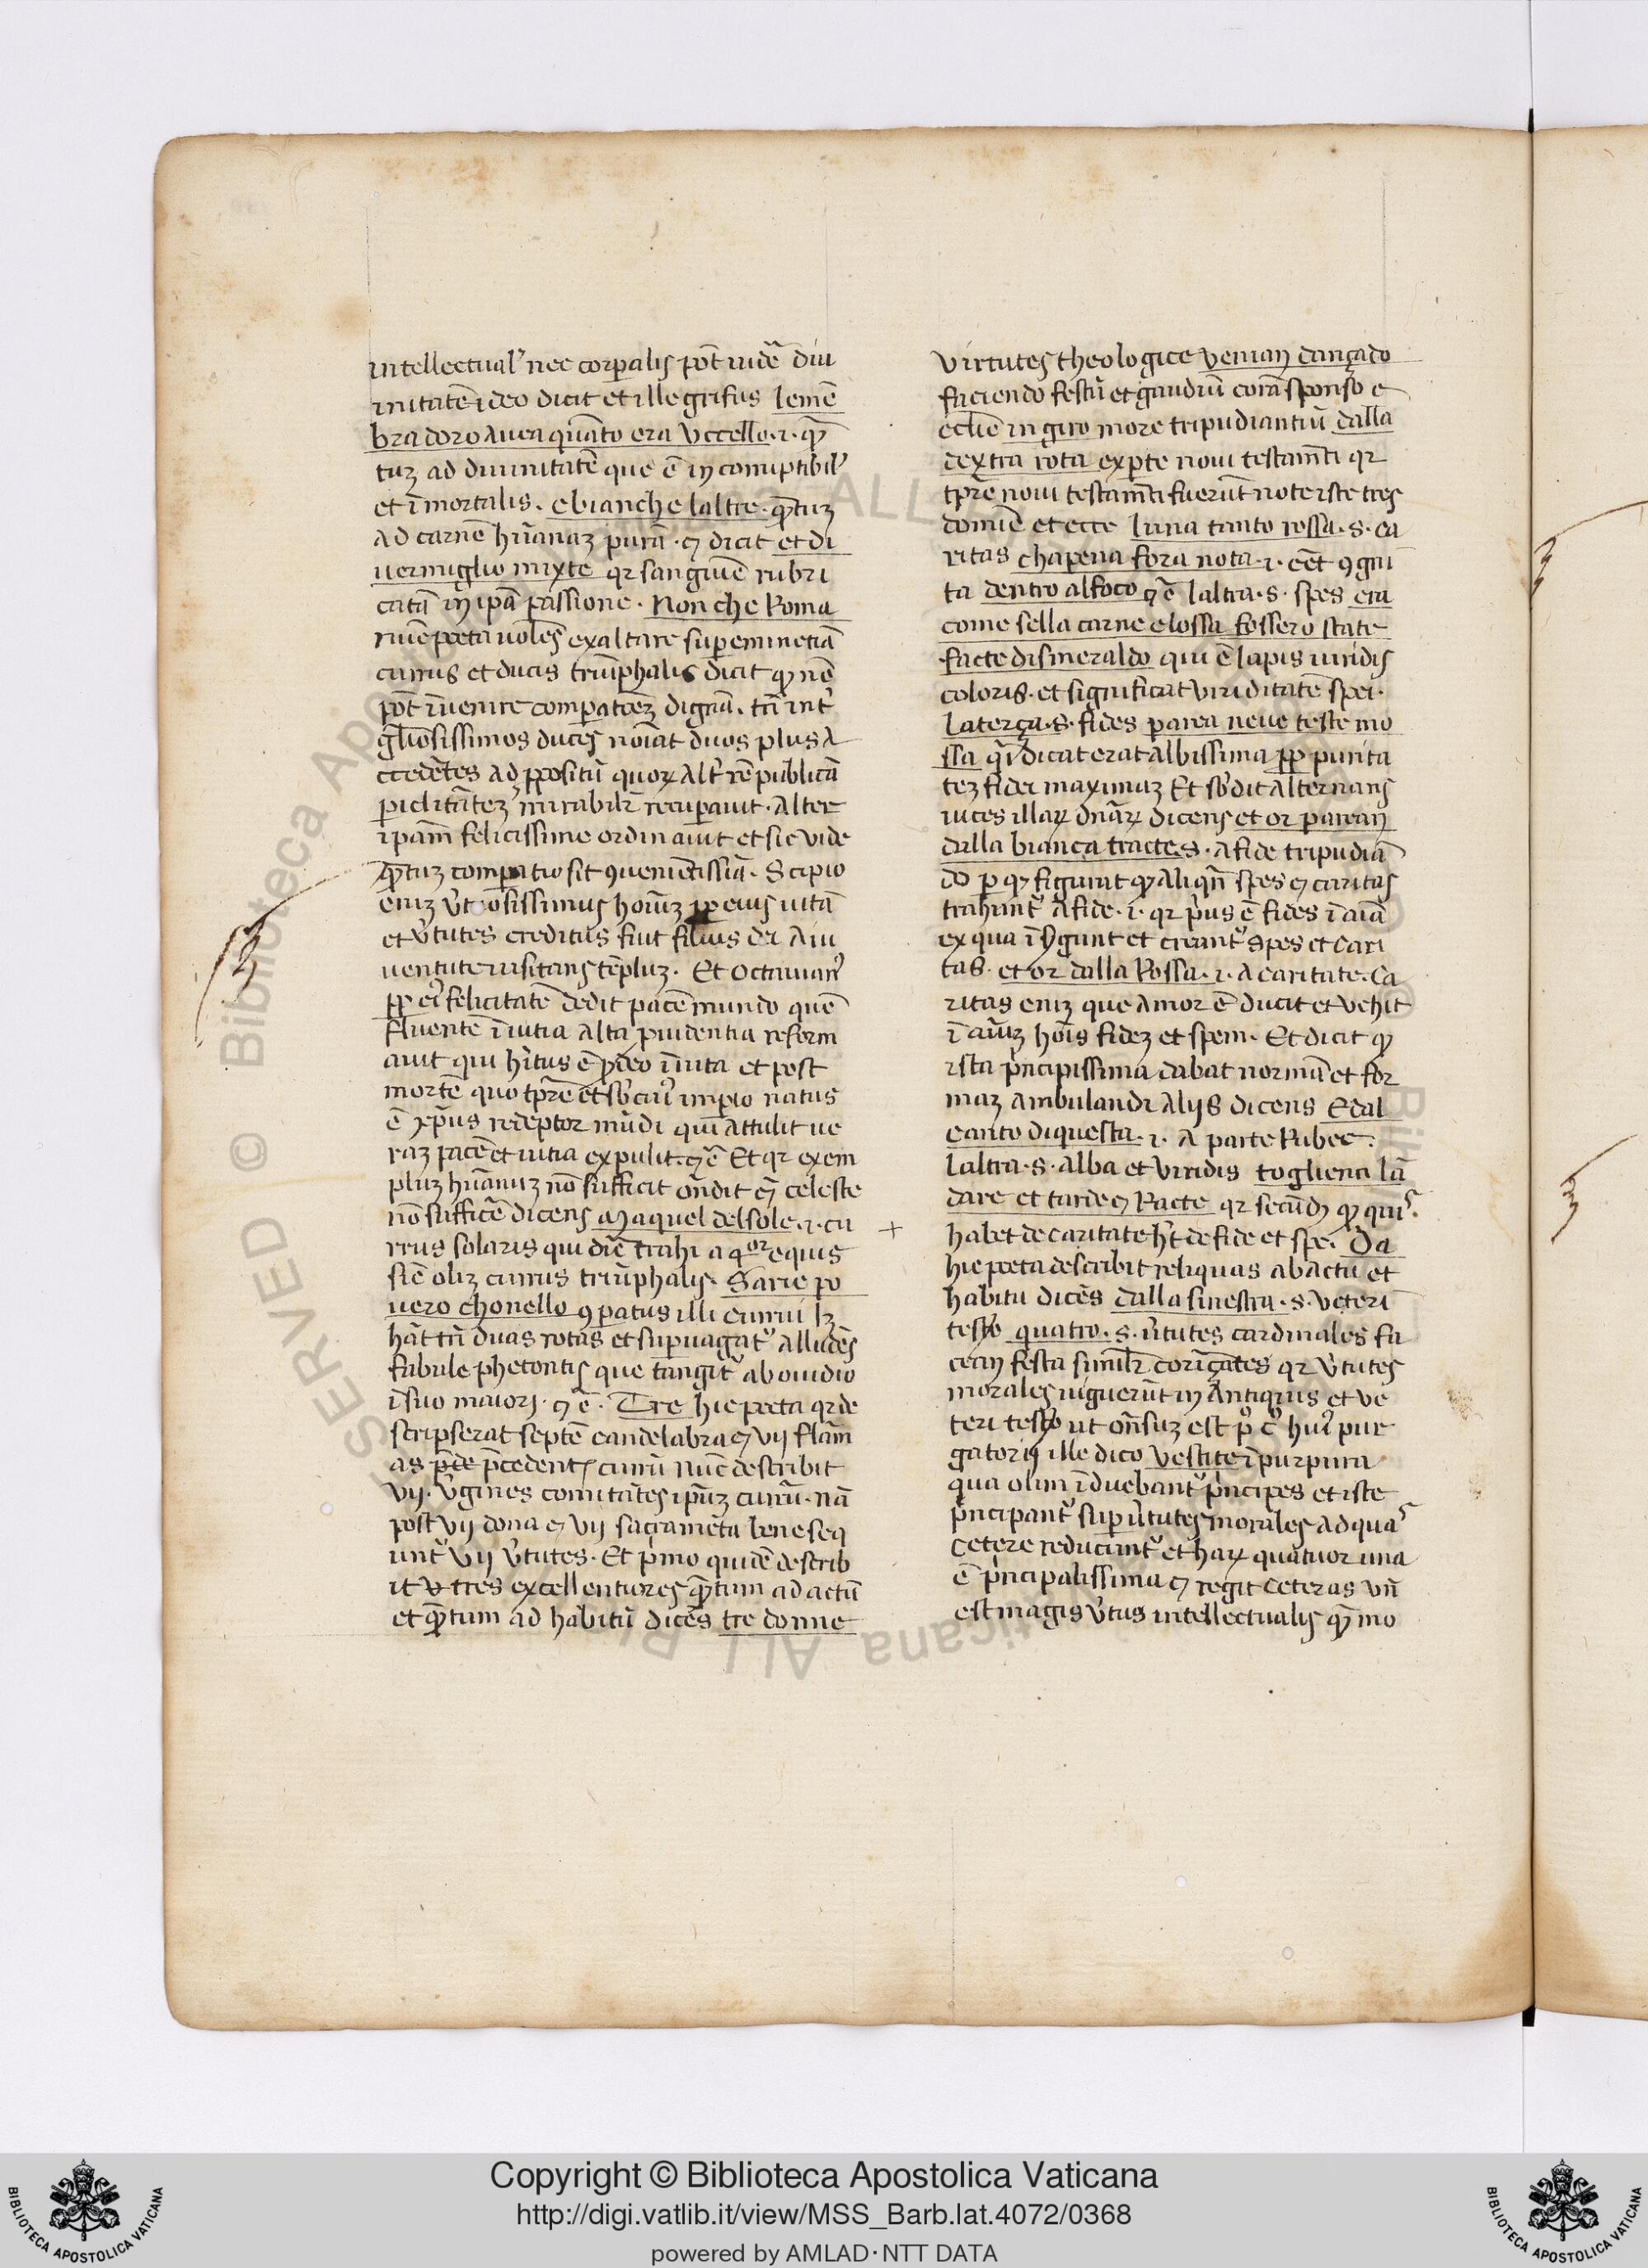 intellectual' nec corporalis pōt uidē diu
initatē ideo dicit et ille grifus lemē
bra doro auea quāto era Vccello .i. quā
tuz ad diuinitatē que ē in corruptibil'
et īmortalis. e bianche laltre. quātuz
ad carnē hūanaz purā. 7 dicit et di
uermiglio mixte qr sanguinē rubri
catā in ipā passione. Non che Roma
nūc poeta uolēs exaltare supeminētiā
currus et ducis triūphalis dicit q nō
pōt īuenire comparatōez dignā. tn̄ int'
gliosissimos duces noīat duos plus a
ccedētes ad ppositū quoꝝ alt' rē publicā
piclitātez mirabilr recupauit. Alter
ipam felicissime ordinauit et sic uide
quātuz comparatio sit 9uenientissīa. Scipio
eniz v'tuosissimus hoīuz pp eius uitā
et v'tutes creditus fuit filius dei a iu
uentute uisitans tēpluz. Et octauian'
pp ei' felicitatē dedit pacē mundo quē
fluentē īiustitia alta prudentia reform
auit qui hītus ē p deo īuita et post
mortē quo tpre et sb cui' imperio natus
ē xp̄us redēptor mūdi qui attulit ue
raz pacē et iustitia expulit. 7c̄ Et qr exem
pluz hūanuz nō sufficit on̄dit q celeste
nō sufficē dicens Ma quel del sole .i. cu
rrus solaris qui dīc trahi a 4or equis
sic oliz currus triūphalis. Sarie po
uero chonello 9patus illi currui lz
hāt tn̄ duas rotas et supuagat' alludēs
fabule phetontis que tangit' ab ouidio
ī suo maiori. 7c̄. Tre hic poeta qr de
scripserat septē candelabra 7 vij flām
as p̄de p̄cedent' currū nūc describit
vij. v'gines comitātes ipsuz currū. nā
post vij dona 7 vij sacramēta bene seq
unt' vij v'tutes. Et primo quidē describ
it tres excellentiores quātum ad actū
et quātum ad habitū dicēs tre donne
virtutes theologice venian dançādo
faciendo festū et gaudiū corā sponso e
ecclie in giro more tripudiantiū dalla
dextra rota ex parte noui testamēti qr
tpre noui testamēti fuerūt note iste tres
domine et ecce luna tanto rossa. s. ca
ritas chapena fora nota .i. eēt 9gni
ta dentro al foco 7c̄ laltra. s. spes era
come sella carne e lossa fossero state
facte dismeraldo qui ē lapis uiridis
coloris. et significat viriditatē spei.
laterça. s. fides parea neue teste mo
ssa q.d. dicat erat albissima pp purita
tez fidei maximaz Et sb'dit alternans
uices illaꝝ dn̄aꝝ dicens et or parean
dalla bianca tracte. s. a fide tripudiā
do p q figurat q aliqn̄ spes 7 caritas
trahunt' a fide .i. qr p'us ē fides ī aīa
ex qua īsurgunt et creant' spes et cari
tas. et or dalla Rossa .i. a caritate. Ca
ritas eniz que amor ē ducit et vehit
ī aīuz hoīs fidez et spem. Et dicit q
ista principissima dabat normā et for
maz ambulandi alijs dicens E dal
canto di questa .i. a parte Rubee.
laltra. s. alba et viridis toglien lā
dare et tarde 7 Racte qr secūdū q quis
habet de caritate h't de fide et spe. Da
hic poeta describit reliquas ab actu et
habitu dicēs dalla sinestra. s. veteri
testo quatro. s. v'tutes cardinales fa
cean festa similr coriçātes qr v'tutes
morales uiguerūt in Antiquis et ve
teri testo ut on̄suz est p° c° hui' pur
gatorij ille dico vestite ī purpura
qua olim īduebant' principes et iste
principant' super v'tutes morales ad quas
cetere reducunt' et haꝝ quatuor una
ē principalissima 7 regit ceteras vn̄
est magis v'tus intellectualis quā mo
Copyright © Biblioteca Apostolica Vaticana
http://digi.vatlib.it/view/MSS_Barb.lat.4072/0368
powered by AMLAD·NTT DATA
BIBLIOTECA APOSTOLICA VATICANA
BIBLIOTECA APOSTOLICA VATICANA